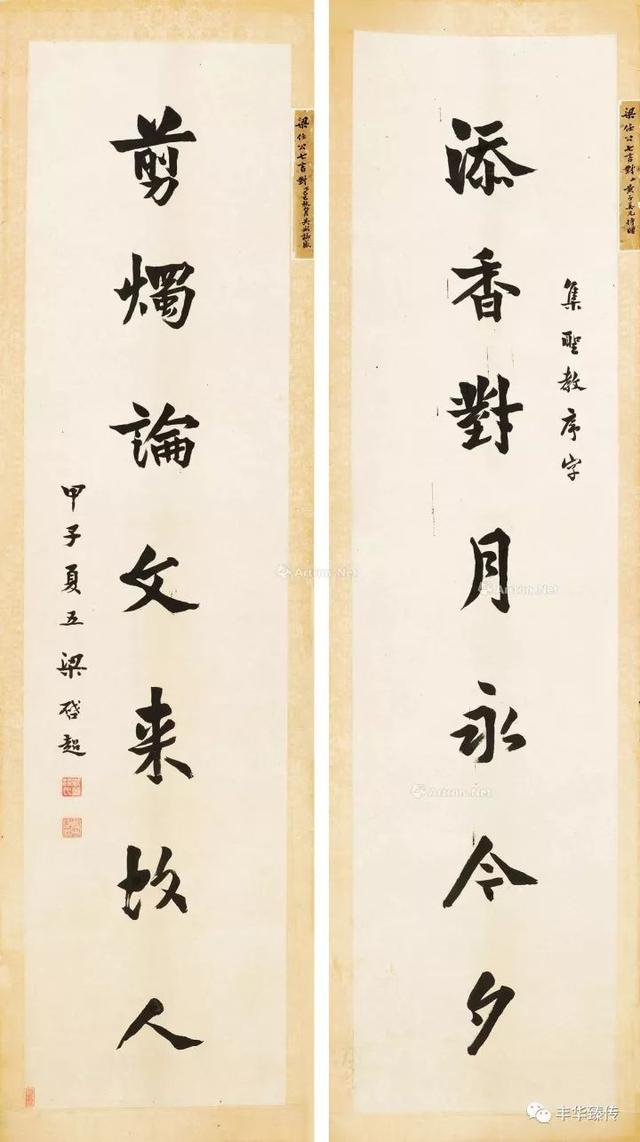 添香對月永今夕
集聖教序字
剪燭論文来故人
甲子夏五梁啓超
梁任公七言對
梁任公七言對
Artron.Net
Artron.Net
Artron.Net
丰华臻传